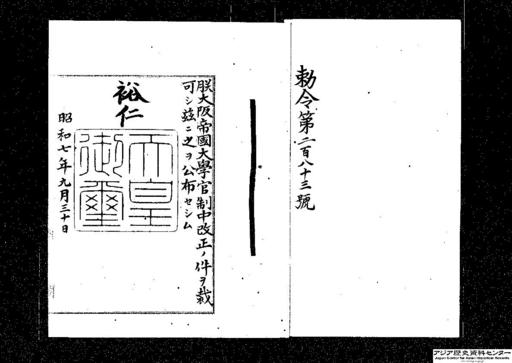 勅令第二百八十三號
朕大阪帝國大學官制中改正ノ件ヲ裁
可シ玆ニ之ヲ公布セシム
裕仁
天皇御璽
昭和七年九月三十日
アジア歴史資料センター
Japan Center for Asian Historical Records